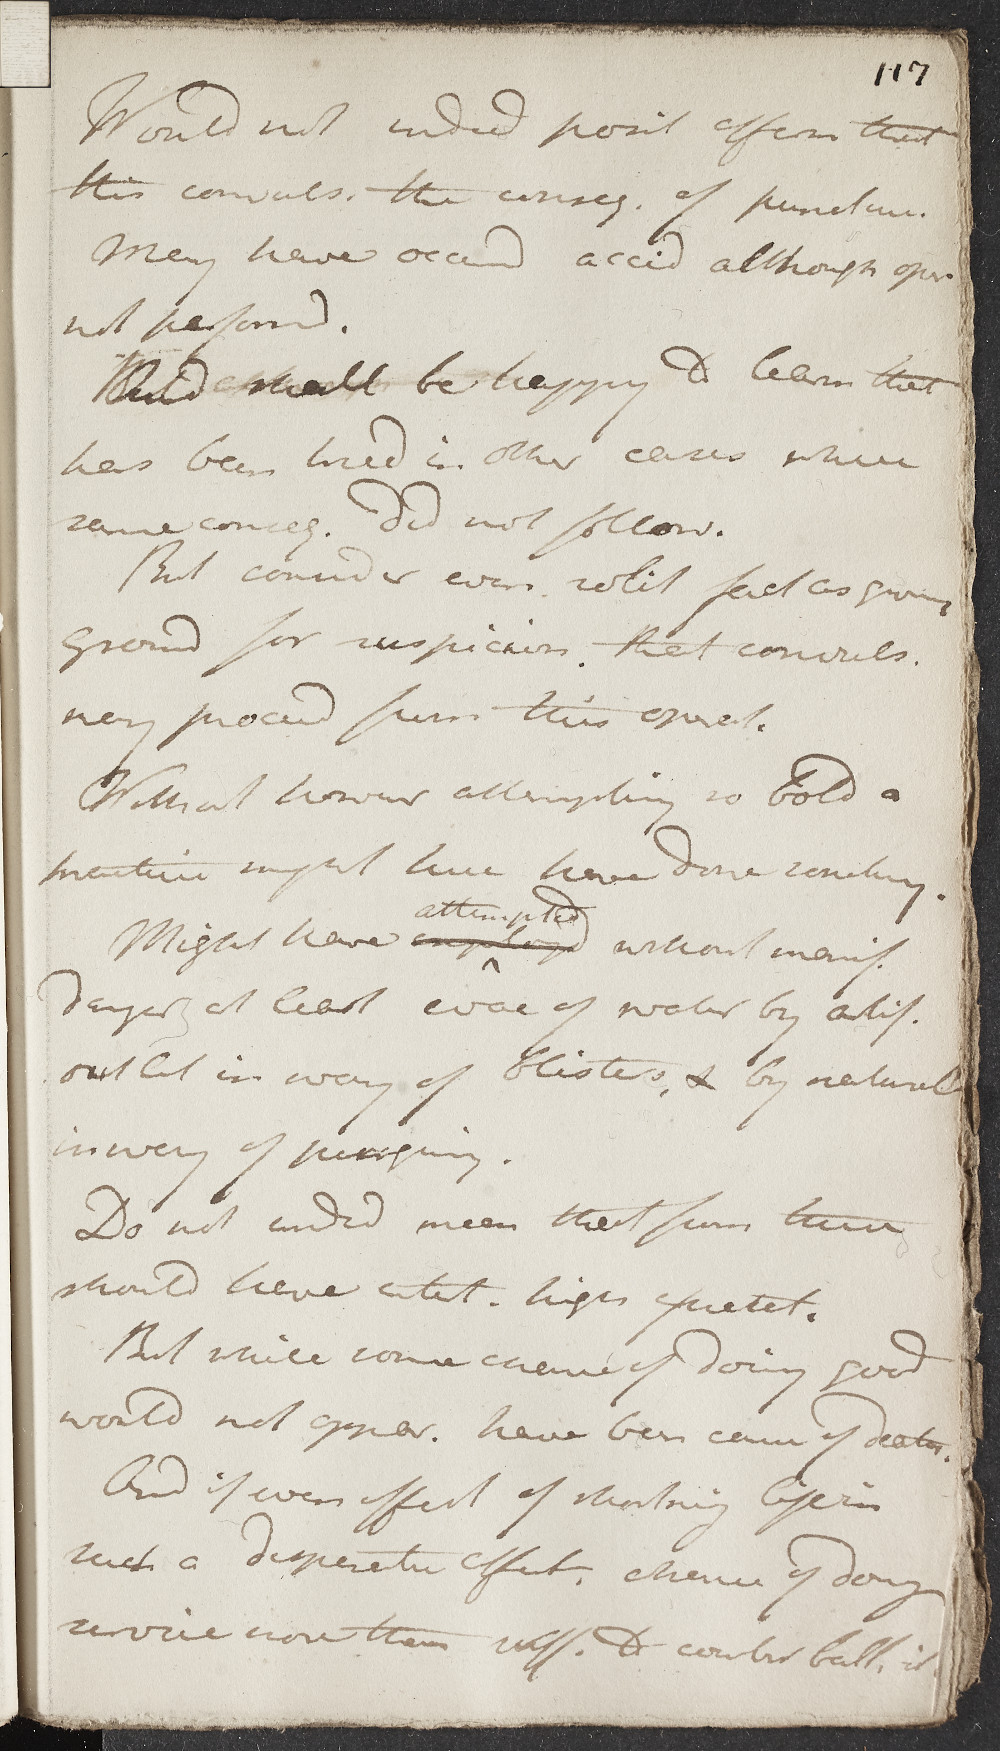 117
Would not indeed posit affirm that
this convuls. the conseq. of punctur.
May have occurd accid although oper
not performd.
And shall be happy to learn that
has been tried in other cases where
same conseq. did not follow.
But consider even solit fact as giving
ground for suspicion. that convuls.
may proceed from this operat.
Without however attempting so bold a
practice might here have done something.
attempted
Might have employd without manif.
danger at least evac of water by artif.
outlet in way of blisters, & by natural
in way of purging.
Do not indeed mean that from these
should have entert. high expectat.
But while some chance of doing good
would not appear. have been cause of death.
And if even effect of shortning life in
such a desperate affect. chance of doing
service more than suff. to counter ball. it.